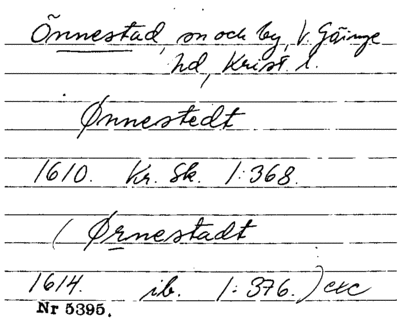 Önnestad, sn och by, V. Göinge
hd, Krist. l.
Ønnestedt
1610. Kr. Sk. 1:368.
( Ørnestadt
1614. ib. 1:376.) exc
Nr 5395.